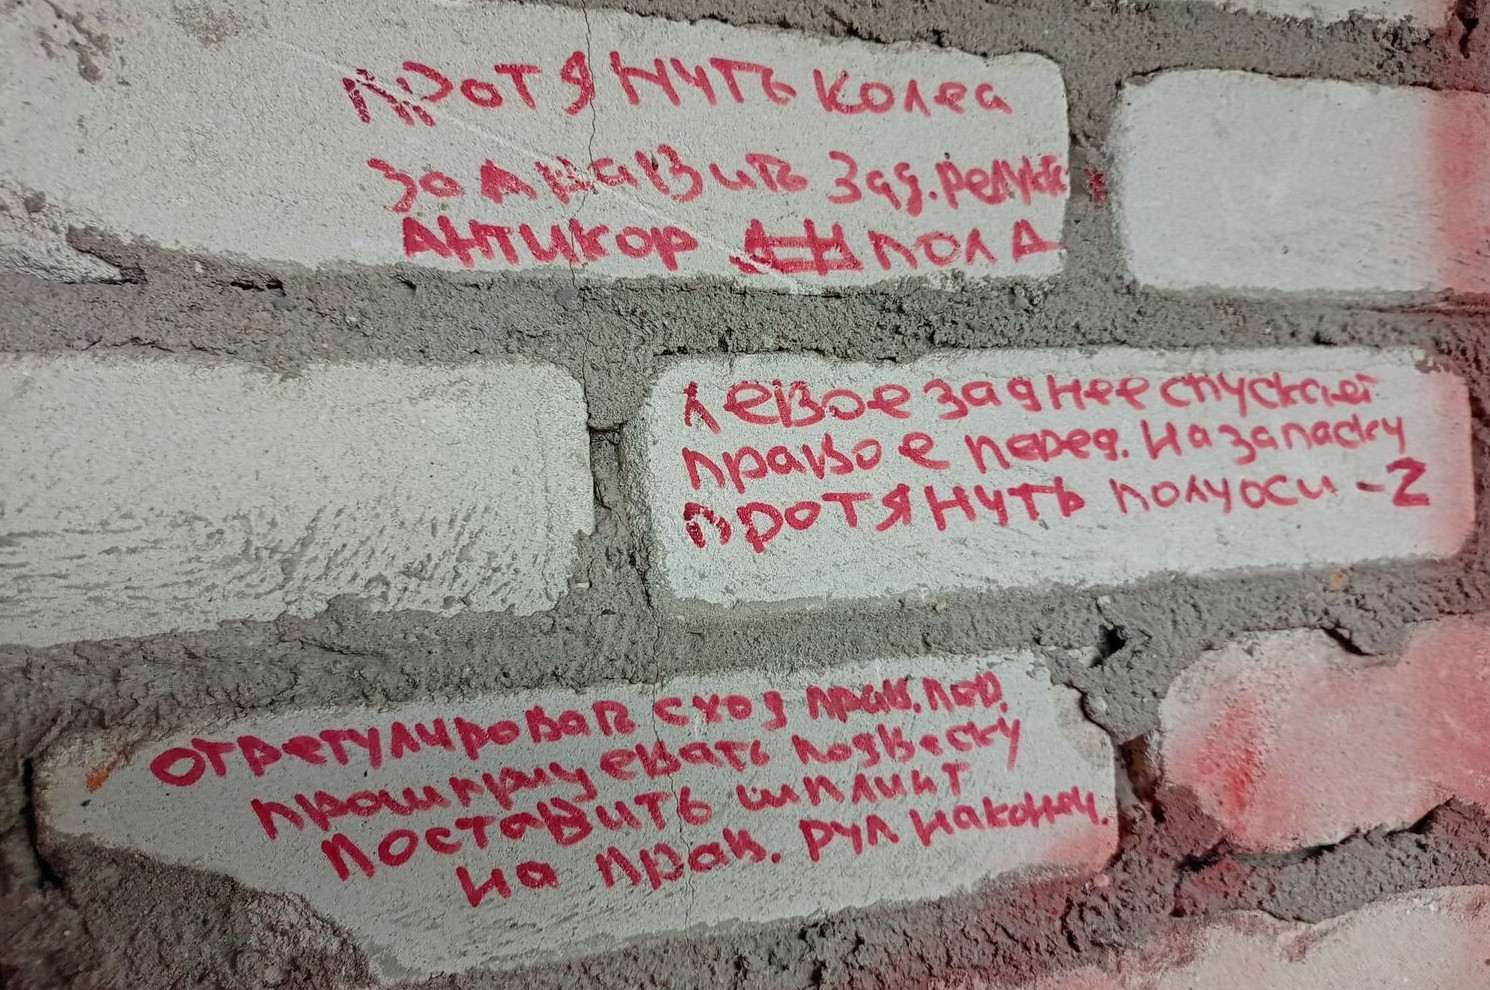 ПРОТЯНУТЬ колеа
зоправить зад. редук
Антикор пола
левое заднее спускает
правое перед. на запаску
ПРОТЯНУТЬ полуоси -2
отрегулировать сход прав. пер.
прошприцевать подвеску
поставить шплинт
на прав. рул наконеч.